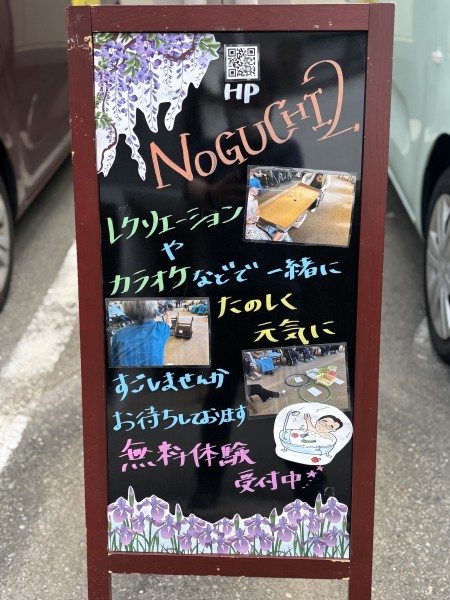 HP
NOGUCHI2
レクリエーション
や
カラオケなどで一緒に
たのしく
元気に
すごしませんか
お待ちしております
無料体験
受付中